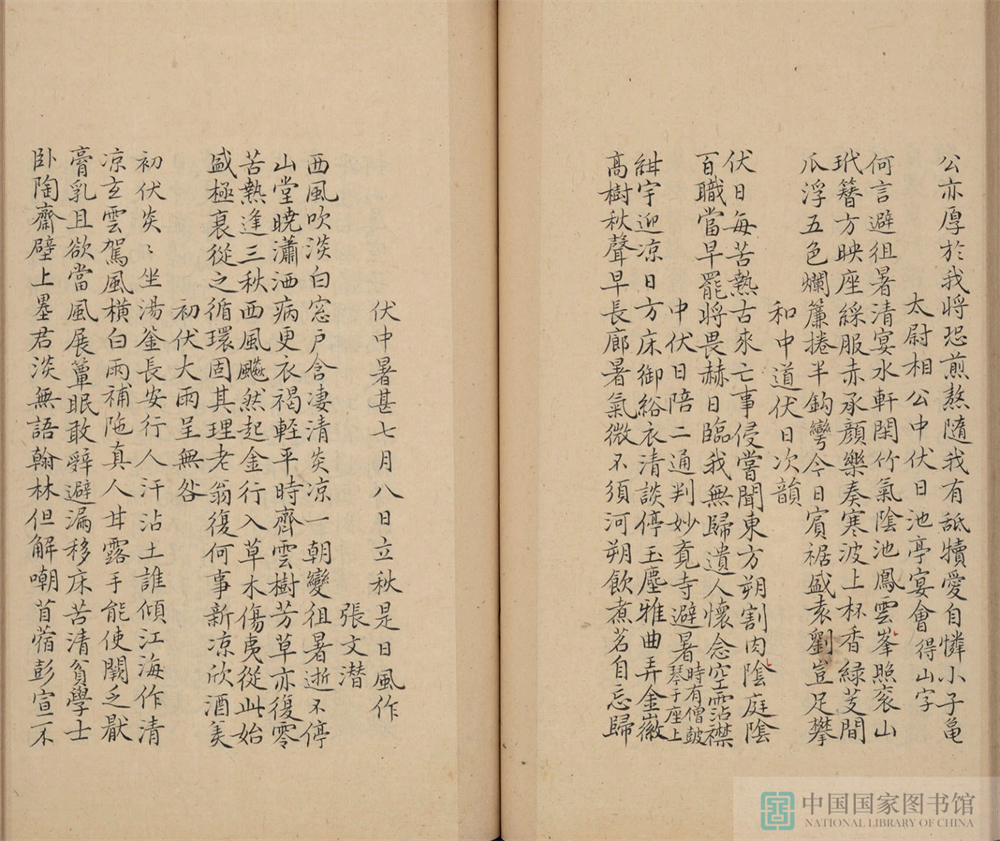 公亦厚於我將恐煎熬隨我有舐犢愛自憐小子黽
太尉相公中伏日池亭宴會得山字
何言避徂暑清宴水軒閑竹氣陰池鳳雲峯照衮山
玳簪方映座綵服赤承顔樂奏寒波上杯香綠芰間
瓜浮五色爛簾捲半鈎彎今日賓裾盛袁劉豈足攀
和中道伏日次韻
伏日每苦熱古來亡事侵嘗聞東方朔割肉陰庭陰
百職當早罷將畏赫日臨我無歸遺人懷念空霑襟
中伏日陪二通判妙覔寺避暑時有僧鼓琴于座上
紺宇迎凉日方床御綌衣清談停玉塵雅曲弄金徽
高樹秋聲早長廊暑氣微不須河朔飲煮茗自忘歸
伏中暑甚七月八日立秋是日風作
張文潜
西風吹淡白窓戸含凄清炎凉一朝變徂暑逝不停
山堂曉瀟洒病更衣褐輕平時齊雲樹芳草亦復零
苦熱逢三秋西風颯然起金行入草木傷夷從此始
盛極衰從之循環固其理老翁復何事新凉欣酒美
初伏大雨呈無咎
初伏炎〻坐湯釜長安行人汗沾土誰傾江海作清
凉玄雲駕風橫白雨補陁真人甘露手能使闕乏厭
膏乳且欲當風展簟眠敢辤避漏移床苦清貧學士
卧陶齋壁上墨君淡無語翰林但解嘲苜蓿彭宣不
中国国家图书馆
NATIONAL LIBRARY OF CHINA